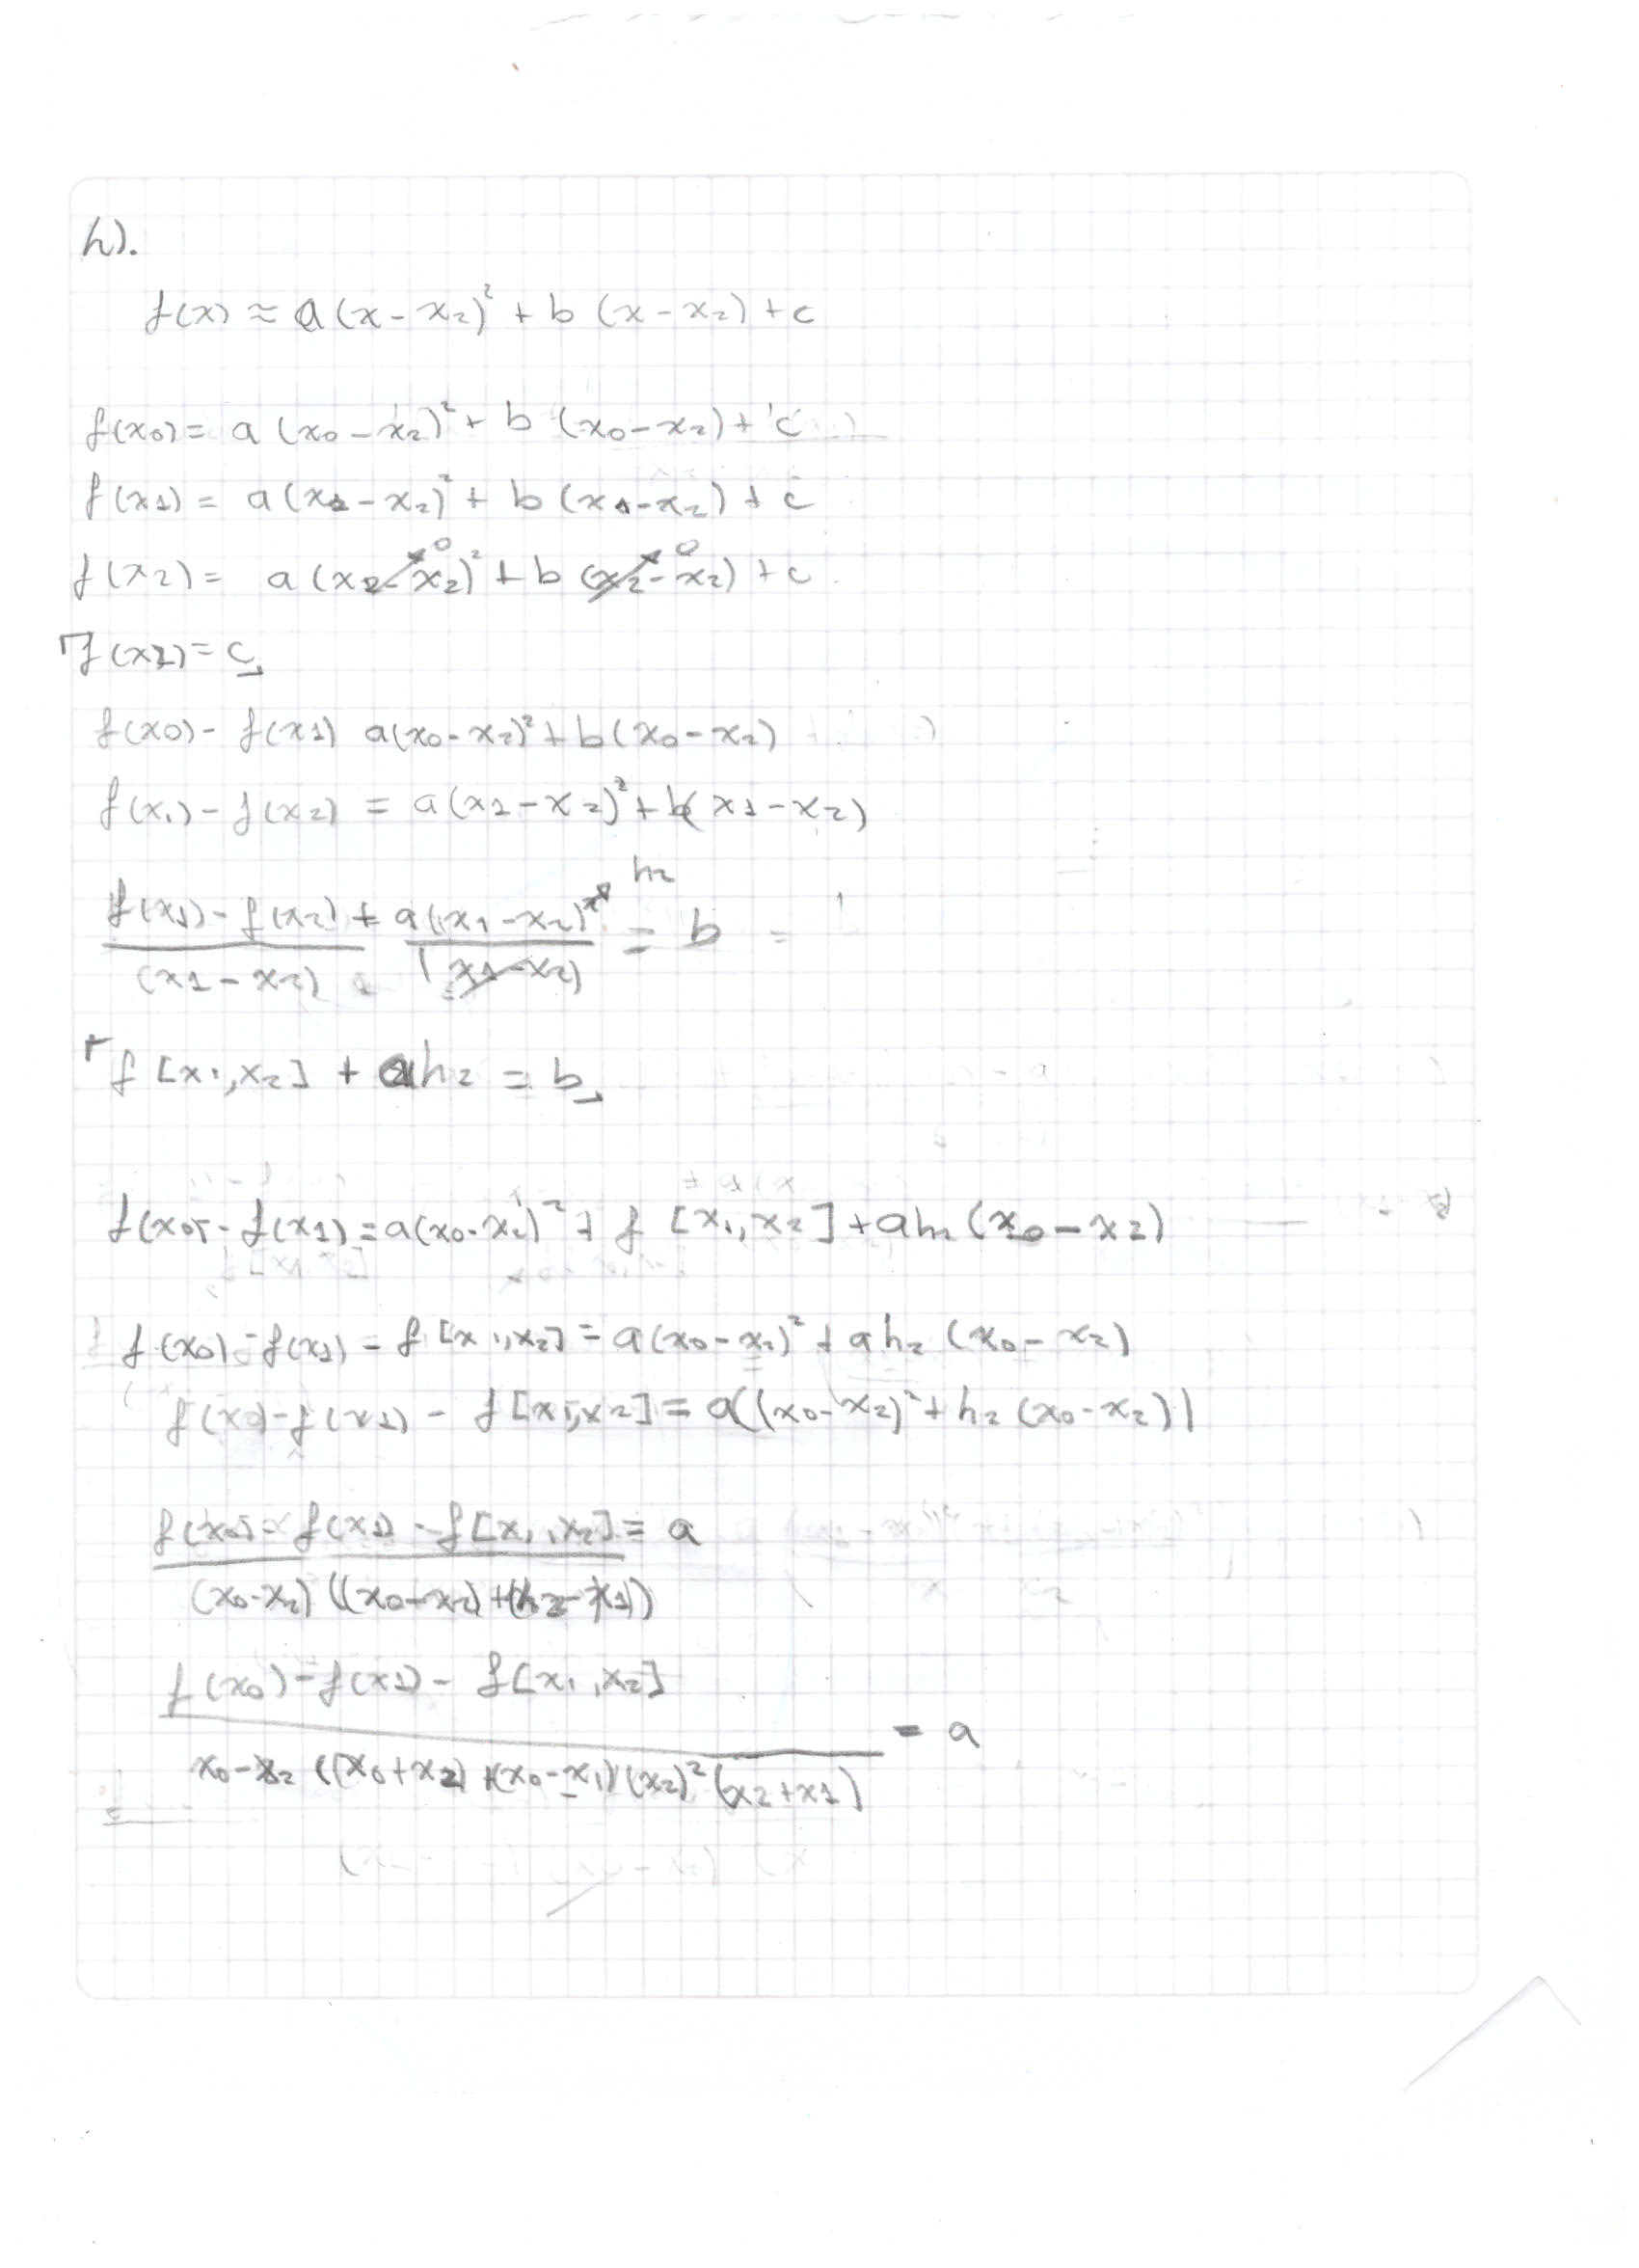 h).
f(x) ≈ a(x-x₂)² + b(x-x₂)+c
f(x0) = a(x0-x₂)² + b(x0-x₂)+c
f(x1) = a(x1-x₂)² + b(x1-x₂)+c
f(x2) = a(x2-x₂)² 0 + b(x₂-x₂) 0 +c
f(x2) = c
f(x0) - f(x1) a(x0-x₂)² + b(x0-x₂)
f(x₁) - f(x2) = a(x1-x2)² + b(x1-x2)
f(x1) - f(x2) + a(x1-x2)² h₂ = b =
(x1-x2) (x1-x2)
f[x₁,x₂] + ah₂ = b
f(x0) - f(x1) = a(x0-x₂)² + f[x₁,x₂] + ah₂(x0-x2)
f(x0) - f(x1) - f[x₁,x₂] = a(x0-x₂)² + ah₂(x0-x₂)
f(x0) - f(x1) - f[x1,x2] = a((x0-x₂)² + h₂(x0-x₂))
f(x0) - f(x1) - f[x₁,x₂] = a
(x0-x₂)((x0-x2)+(x2-x1))
f(x0) - f(x1) - f[x₁,x₂]
= a
x0-x2 ((x0+x2)+(x0-x₁)(x2)²(x2+x1)